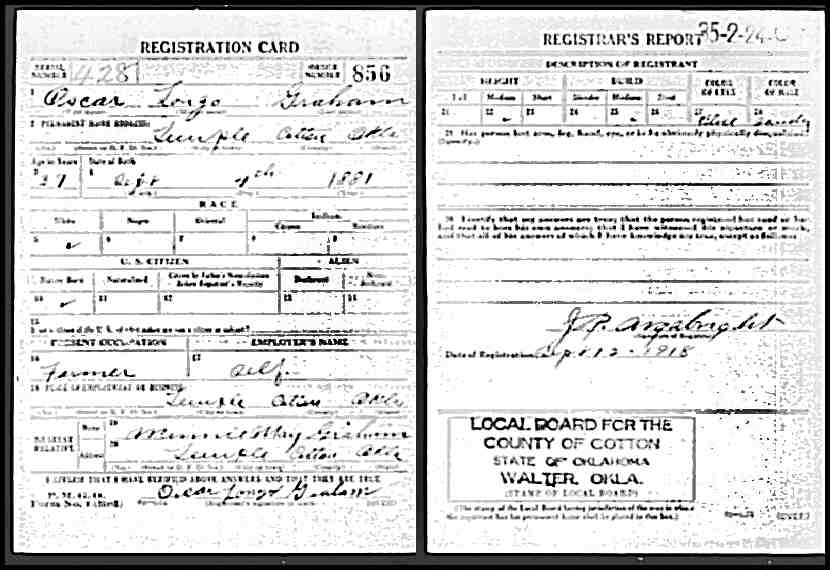 REGISTRATION CARD
SERIAL NUMBER 4287 ORDER NUMBER 856
1 Oscar Longo Graham
2 PERMANENT HOME ADDRESS:
Temple Cotton Okla
Age in Years Date of Birth
37 Sept 4th 1881
RACE
White Negro Oriental Indian
Citizen
5 6 7 8 9
U. S. CITIZEN ALIEN
Native Born Naturalized
10 11 12 13 14
15
PRESENT OCCUPATION EMPLOYER'S NAME
16 Farmer 17 Self
18 PLACE OF EMPLOYMENT OR BUSINESS
Temple Cotton Okla
NEAREST RELATIVE Name 19 Minnie May Graham
Address 20 Temple Cotton Okla
I AFFIRM THAT I HAVE VERIFIED ABOVE ANSWERS AND THAT THEY ARE TRUE
P. M. G. O.
Form No. 1 (Red) Oscar Longo Graham
REGISTRAR'S REPORT 35-2-24-C
DESCRIPTION OF REGISTRANT
HEIGHT BUILD COLOR OF EYES COLOR OF HAIR
Tall Medium Short Slender Medium Stout
21 22 23 24 25 26 27 Blue 28 Sandy
29 Has person lost arm, leg, hand, eye, or is he obviously physically disqualified?
(Specify.)
30 I certify that my answers are true; that the person registered has read or has
had read to him his own answers; that I have witnessed his signature or mark,
and that all of his answers of which I have knowledge are true, except as follows:
J. P. Argabright
Date of Registration Sept 12 - 1918
LOCAL BOARD FOR THE
COUNTY OF COTTON
STATE OF OKLAHOMA
WALTER, OKLA.
(STAMP OF LOCAL BOARD)
(The stamp of the Local Board having jurisdiction of the area in which
the registrant has his permanent home shall be placed in this box.)